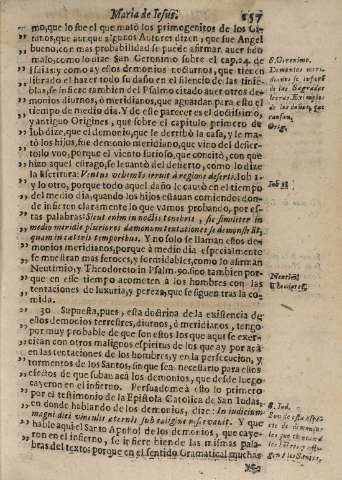 Maria de Jesus. 657
mo, que lo fue el que matò los primogenitos de los Gitanos,
que aunque algunos Autores dizen, que fue Angel
bueno, con mas probabilidad se puede afirmar, aver sido
malo, como lo dize San Geronimo sobre el cap. 24. de
Isaias; y como ay essos demonios nocturnos, que tienen
librado el hazer todo su daño en el silencio de las tinieblas,
se infiere tambien del Psalmo citado aver otros demonios
diurnos, ò meridianos, que aguardan para esto el
tiempo de medio dia. Y de esse parecer es el doctissimo,
y antiguo Origines, que sobre el capitulo primero de
Iob dize, que el demonio, que le derribò la casa, y le matò
los hijos, fue demonio meridiano, que vino del desierto:
solo uno, porque el viento furioso, que concitò, con que
hizo aquel estrago, se levantò del desierto, como lo dize
la Escritura: Ventus vehemens irruit à regione deserti. Iob 1.
y lo otro, porque todo aquel daño le causò en el tiempo
del medio dia, quando los hijos estavan comiendo: donde
infieren claramente lo que vamos probando, por estas
palabras: Sicut enim in noctis tenebris, sic similiter in
medio meridie pluriores dæmonum tentationes se demonstrāt,
quam in cæteris temporibus. Y no solo se llaman essos demonios
meridianos, porque à medio dia especialmente
se muestran mas feroces, y formidables, como lo afirman
Neutimio, y Theodoreto in Psalm. 90. sino tambien porque
en esse tiempo acometen à los hombres con las
tentaciones de luxuria, y pereza, que se siguen tras la comida.
30 Supuesta, pues, esta doctrina de la existencia de
essos demonios terrestres, diurnos, ò meridianos, tengo
por muy probable de que son estos los que aqui se exercitan
con otros malignos espiritus de los que ay por acà
en las tentaciones de los hombres, y en la persecucion, y
tormentos de los Santos, sin que sea necessario para estos
efectos de que suban acà los demonios, que desde luego
cayeron en el infierno. Persuademe à esto lo primero
por el testimonio de la Epistola Catolica de San Iudas,
en donde hablando de los demonios, dize: In iudicium
magni diei vinculis æternis sub caligine reservavit. Y que
hable aqui el Santo Apostol de los demonios, que cayeron
en el infierno, se infiere bien de las mismas palabras
del texto; porque en el sentido Gramatical muchas
S. Gieronimo.
Demonios
Orig.
Iob 1.
S. Iud.